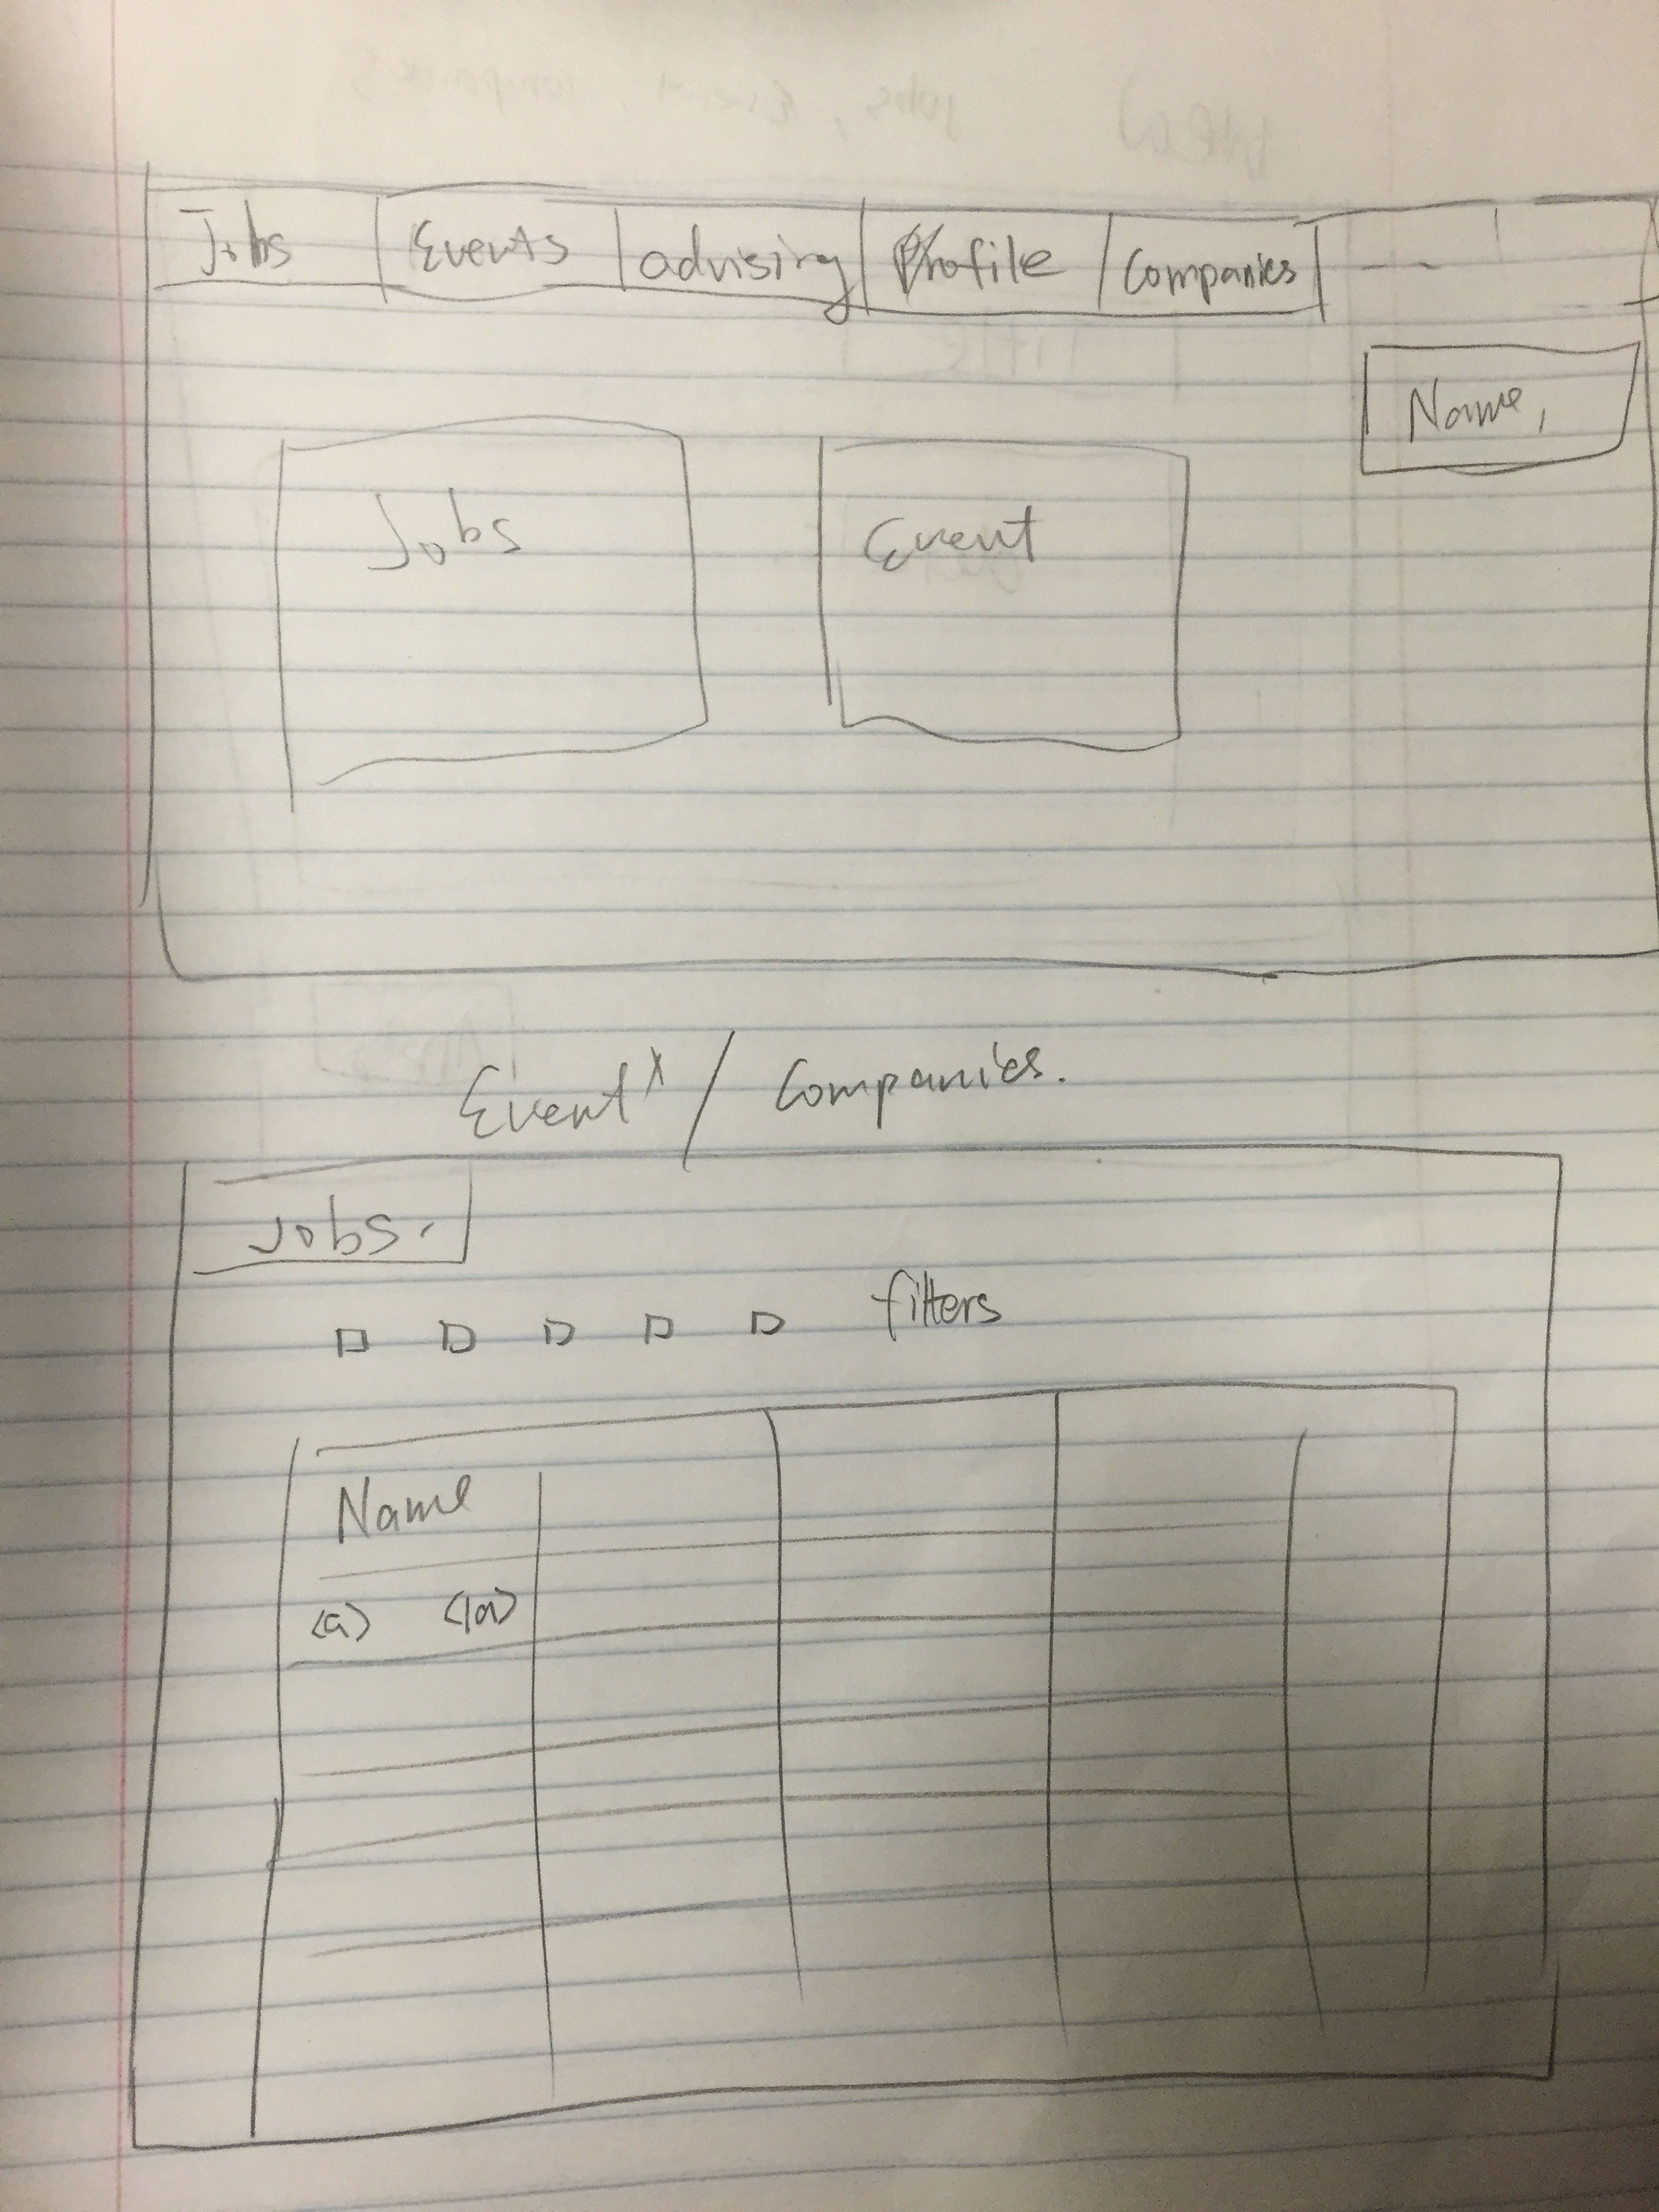 Jobs Events advising Profile Companies
Name,
Jobs Event
Event / Companies.
Jobs.
filters
Name
<a> <|a>